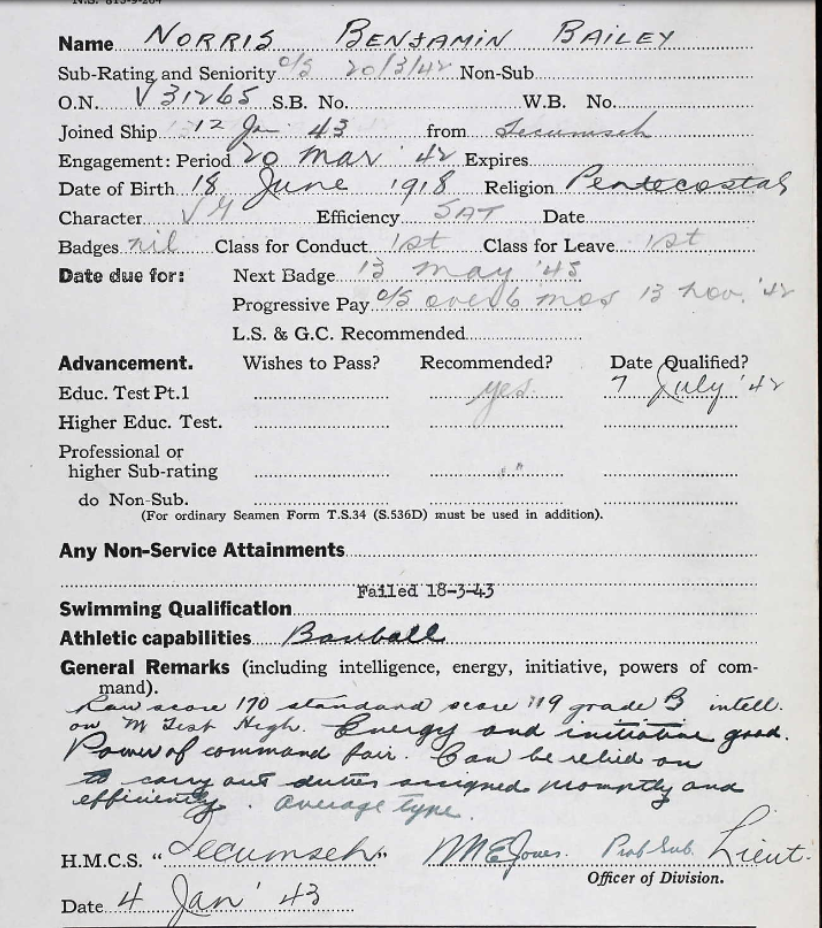 Name NORRIS BENJAMIN BAILEY
Sub-Rating and Seniority O/S 20/3/42 Non-Sub
O.N. V 31265 S.B. No. W.B. No.
Joined Ship 12 Jan 43 from Tecumseh
Engagement: Period 20 Mar '42 Expires
Date of Birth 18 June 1918 Religion Pentecostal
Character VG Efficiency SAT Date
Badges nil Class for Conduct 1st Class for Leave 1st
Date due for: Next Badge 13 May '45
Progressive Pay O/S over 6 mos 13 Nov. '42
L.S. & G.C. Recommended
Advancement. Wishes to Pass? Recommended? Date Qualified?
Educ. Test Pt.1 yes. 7 July '42
Higher Educ. Test.
Professional or
higher Sub-rating "
do Non-Sub.
(For ordinary Seamen Form T.S.34 (S.536D) must be used in addition).
Any Non-Service Attainments
Failed 18-3-43
Swimming Qualification
Athletic capabilities Baseball
General Remarks (including intelligence, energy, initiative, powers of com-
mand).
Raw score 170 standard score 119 grade B intell.
on M Test High. Energy and initiative good.
Power of command fair. Can be relied on
to carry out duties assigned promptly and
efficiently. Average type.
H.M.C.S. "Tecumseh" MEJones. Prob Sub. Lieut.
Officer of Division.
Date 4 Jan' 43